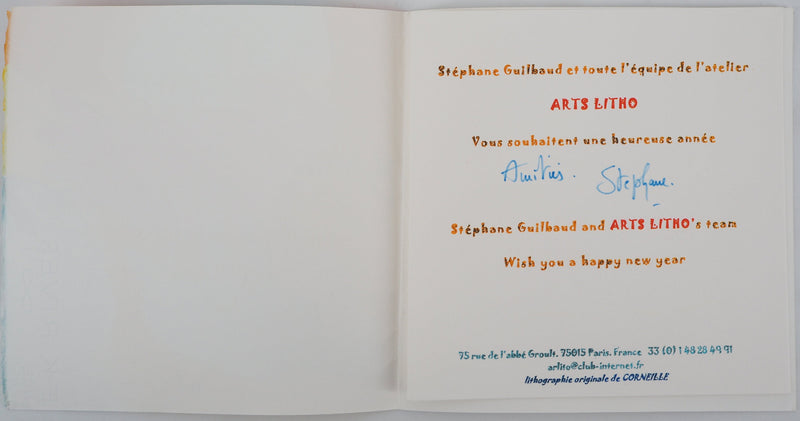 Stéphane Guilbaud et toute l'équipe de l'atelier
ARTS LITHO
Vous souhaitent une heureuse année
Amitiés. Stéphane.
Stéphane Guilbaud and ARTS LITHO's team
Wish you a happy new year
75 rue de l'abbé Groult. 75015 Paris. France 33 (0) 1 48 28 49 91
arlito@club-internet.fr
lithographie originale de CORNEILLE